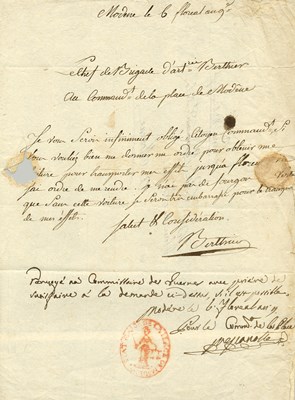 Modène le 6 floréal an 9
Chef de Brigade d'art.rie Berthier
Au Command.t de la place de Modène
Je vous serois infiniment obligé, Citoyen Commandant, si
vous vouliez bien me donner un ordre pour obtenir une
voiture pour transporter mes effets jusqua floren
j'ai ordre de me rendre. je
que sans cette voiture je serois embarassé pour le transport
de mes effets.
Salut et Considération
Berthier
Renvoyé au Commissaire des Guerres avec prière de
satisfaire à la demande ci-dessus, s'il est possible.
Modène le 6 floréal an 9
Pour le Comm.t de la Place